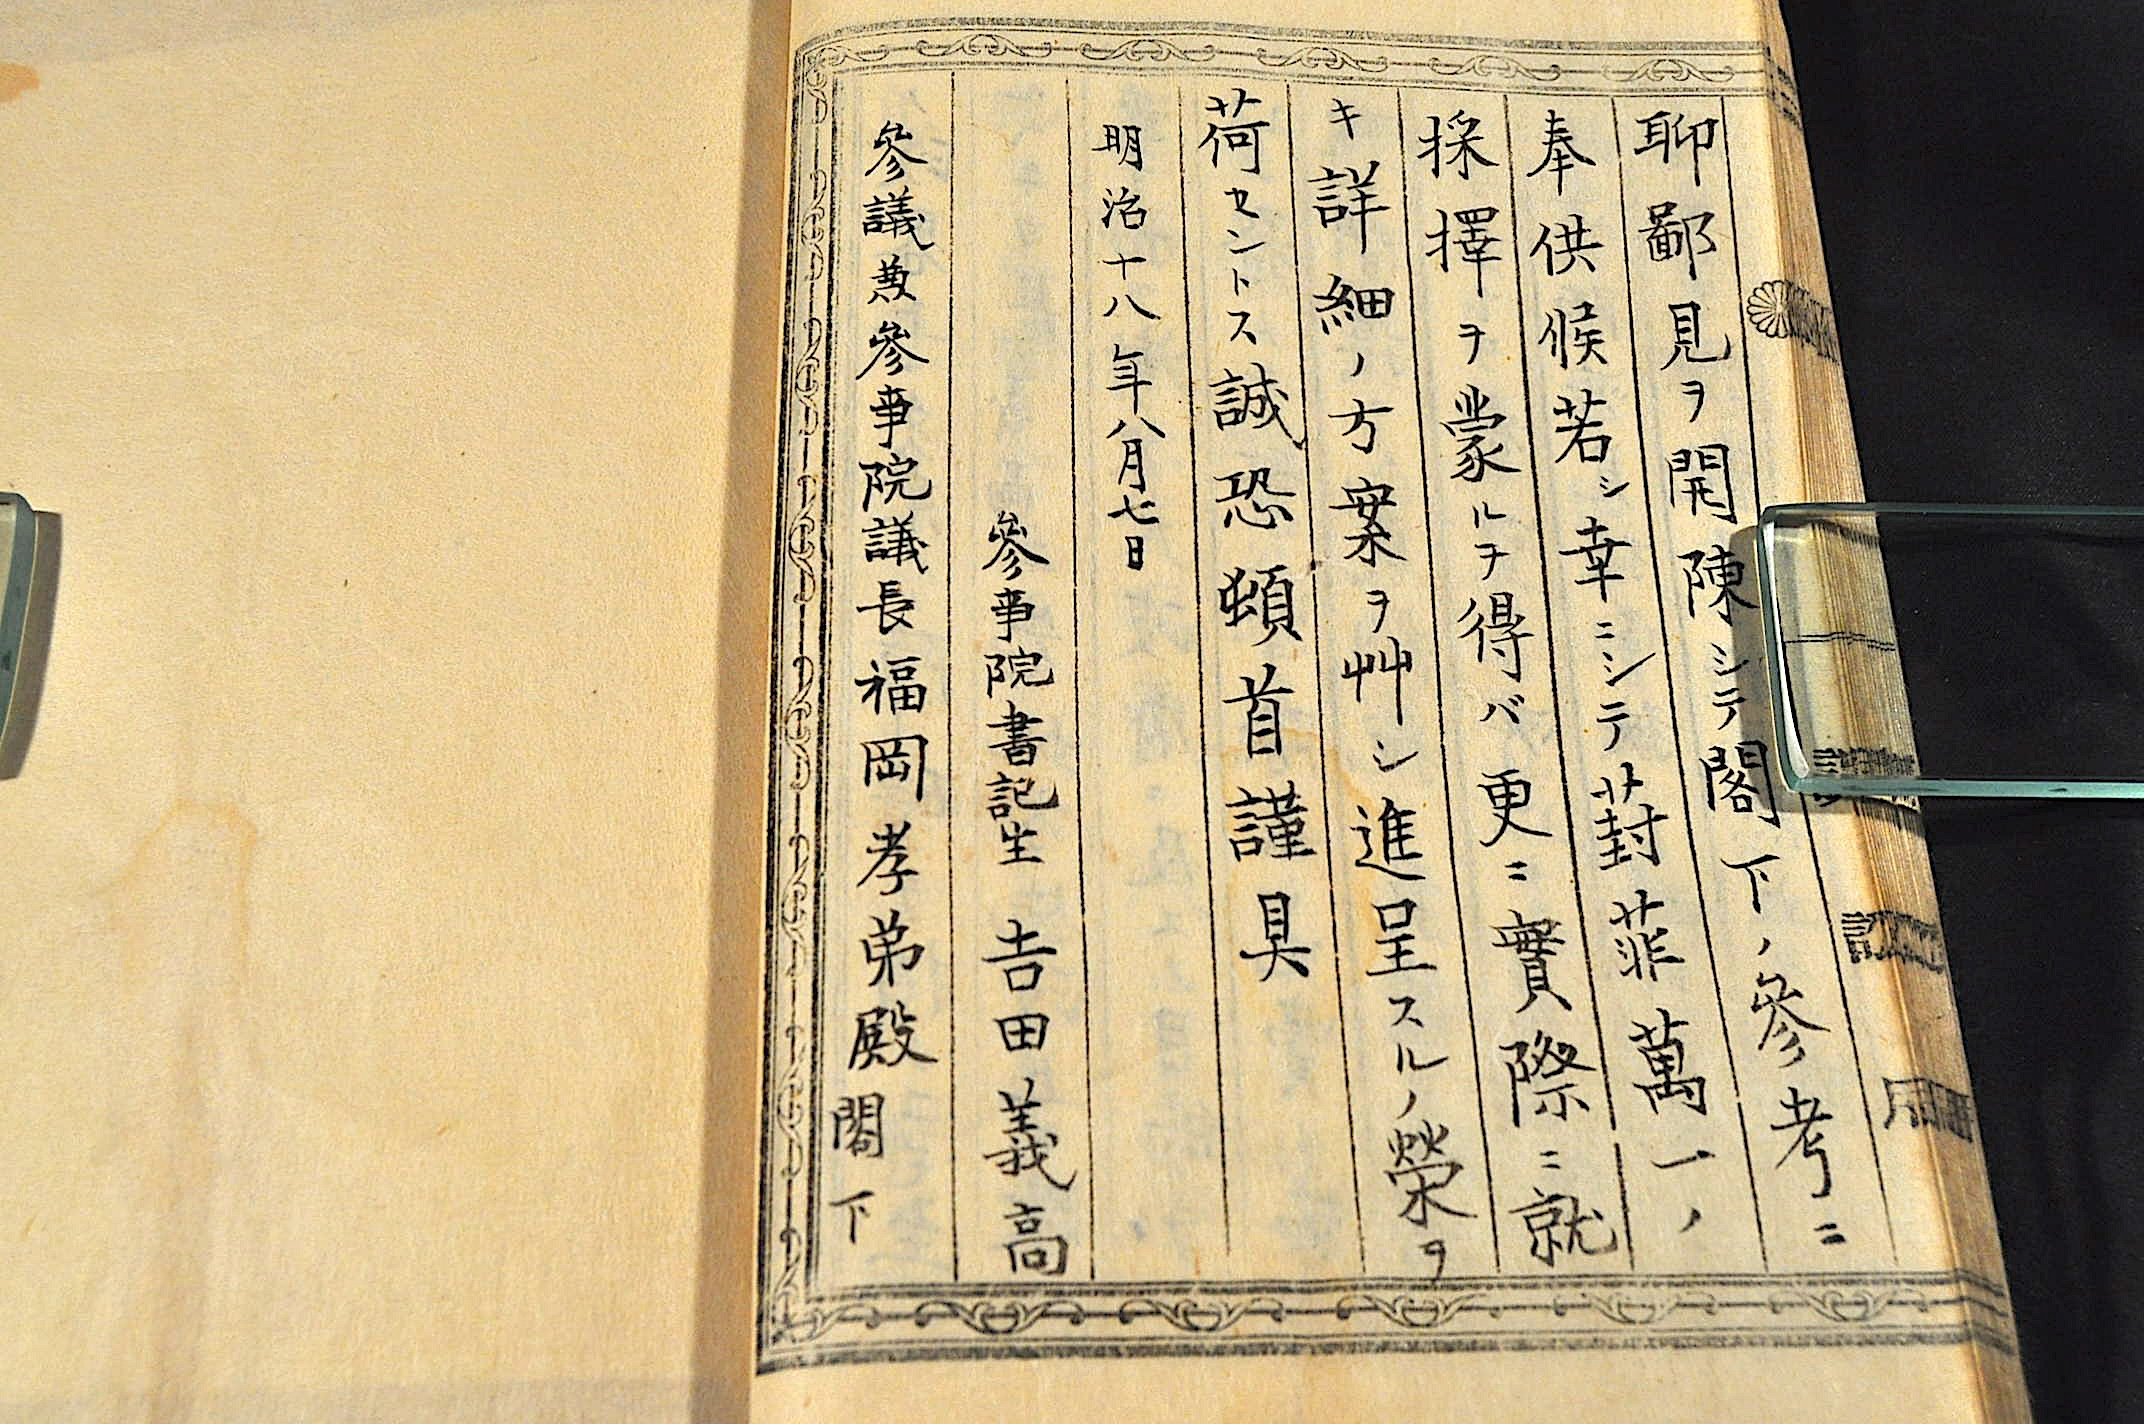 聊鄙見ヲ開陳シテ閣下ノ參考ニ
奉供候若シ幸ニシテ葑菲萬一ノ
採擇ヲ蒙ルヲ得バ更ニ實際ニ就
キ詳細ノ方案ヲ艸シ進呈スルノ榮ヲ
荷セントス誠恐頓首謹具
明治十八年八月七日
參事院書記生 吉田義高
參議兼參事院議長福岡孝弟殿閣下